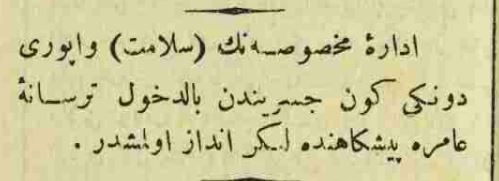 ادارهٔ مخصوصه‌نك (سلامت) واپورى
دونكى كون جسريندن بالدخول ترسانهٔ
عامره پيشكاهنده لنكر انداز اولمشدر .